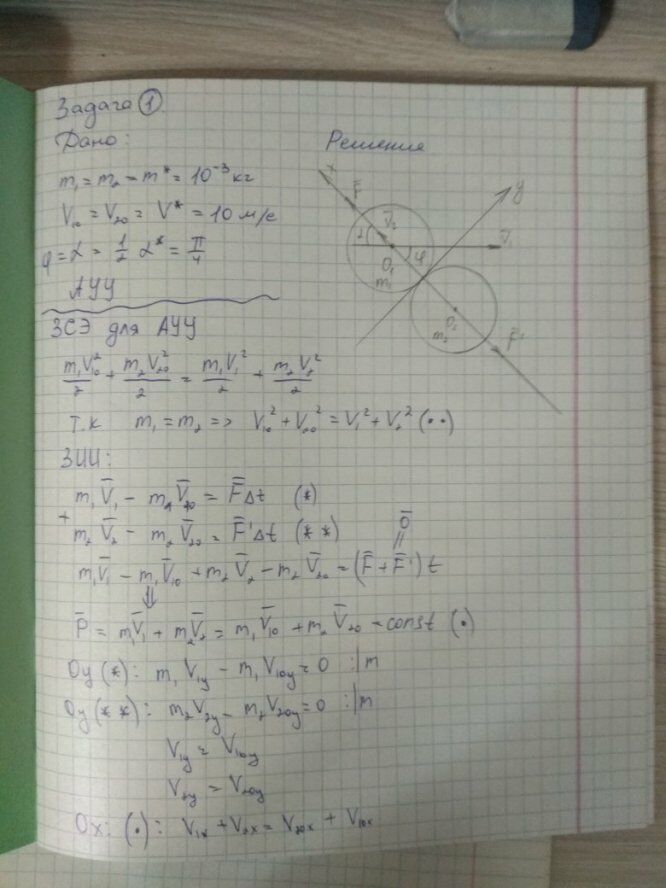 Задача ①
Дано:
Решение
m₁ = m₂ = m* = 10⁻³ кг
V₁₀ = V₂₀ = V* = 10 м/с
φ = α = 1/2 α* = π/4
АУУ
x
F̄
V̄₂
α
φ
O₁
m₁
y
V̄₁
O₂
m₂
F̄'
ЗСЭ для АУУ
m₁V₁₀²/2 + m₂V₂₀²/2 = m₁V₁²/2 + m₂V₂²/2
Т.к m₁ = m₂ => V₁₀² + V₂₀² = V₁² + V₂² (• •)
ЗИИ:
m₁V̄₁ − m₁V̄₁₀ = F̄Δt (*)
+
m₂V̄₂ − m₂V̄₂₀ = F̄'Δt (* *)
0̄
||
m₁V̄₁ − m₁V̄₁₀ + m₂V̄₂ − m₂V̄₂₀ = (F̄ + F̄') t
⇓
P̄ = m₁V̄₁ + m₂V̄₂ = m₁V̄₁₀ + m₂V̄₂₀ = const (•)
Oy (*): m₁V₁y − m₁V₁₀y = 0 :|m
Oy (* *): m₂V₂y − m₂V₂₀y = 0 :|m
V₁y = V₁₀y
V₂y = V₂₀y
Ox: (•): V₁x + V₂x = V₂₀x + V₁₀x